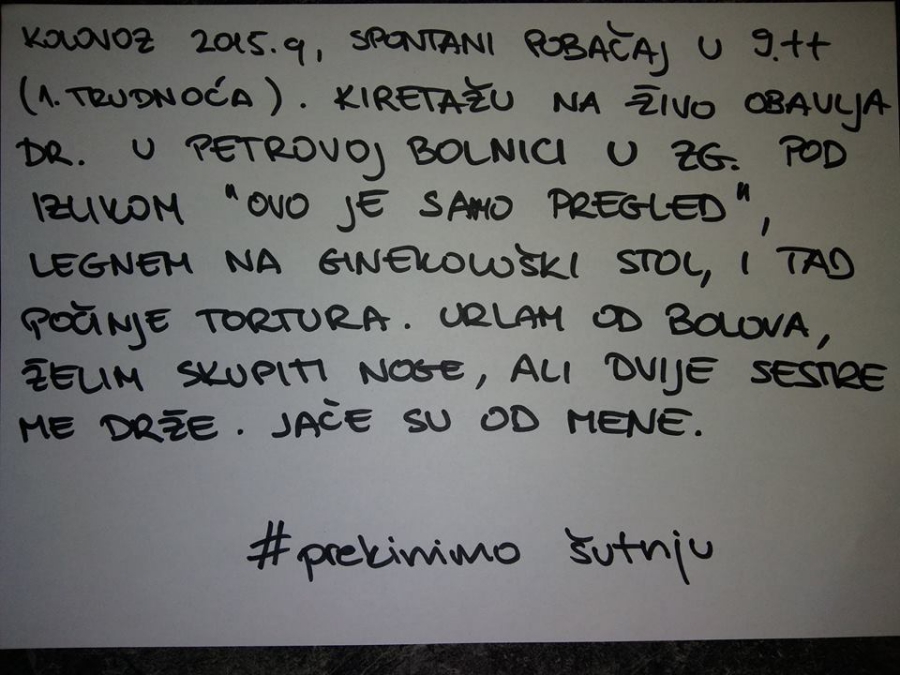 KOLOVOZ 2015.g, SPONTANI POBAČAJ U 9.tt
(1. TRUDNOĆA). KIRETAŽU NA ŽIVO OBAVLJA
DR. U PETROVOJ BOLNICI U ZG. POD
IZLIKOM "OVO JE SAMO PREGLED",
LEGNEM NA GINEKOLOŠKI STOL, I TAD
POČINJE TORTURA. URLAM OD BOLOVA,
ŽELIM SKUPITI NOGE, ALI DVIJE SESTRE
ME DRŽE. JAČE SU OD MENE.
#prekinimo šutnju